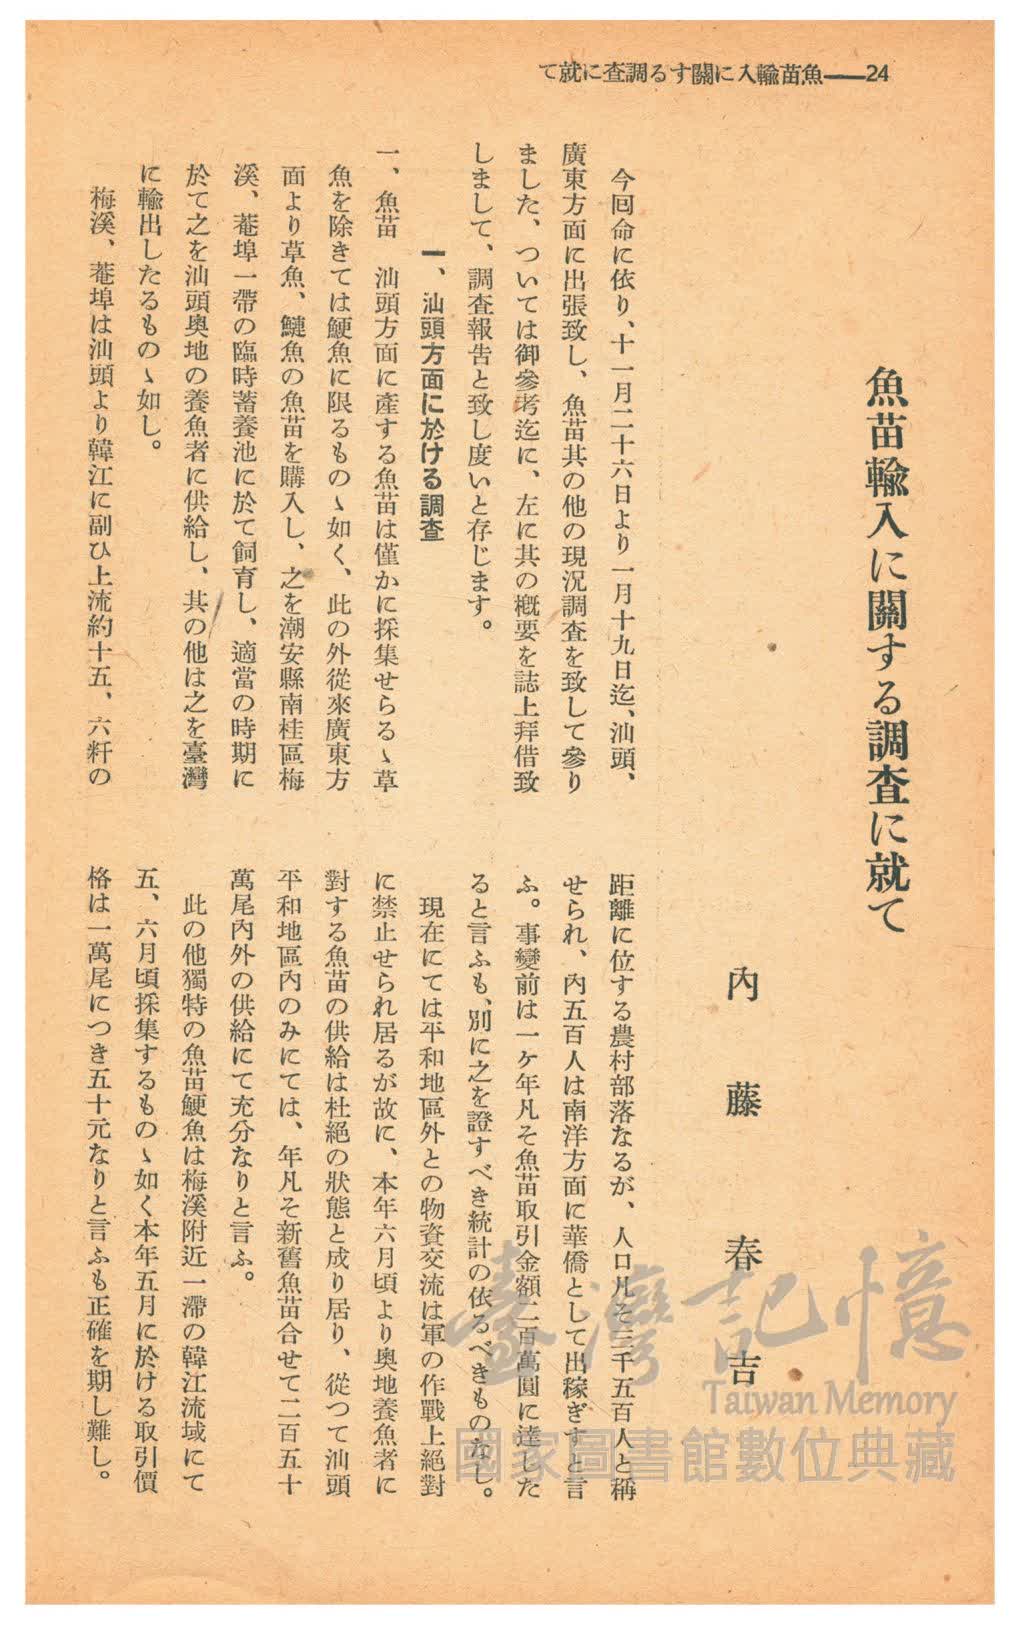 て就に査調るす關に入輸苗魚——24
魚苗輸入に關する調査に就て
內藤春吉
今回命に依り、十一月二十六日より一月十九日迄、汕頭、
廣東方面に出張致し、魚苗其の他の現況調査を致して參り
ました、ついては御參考迄に、左に其の槪要を誌上拜借致
しまして、調査報告と致し度いと存じます。
一、汕頭方面に於ける調査
一、魚苗　汕頭方面に產する魚苗は僅かに採集せらるゝ草
魚を除きては鯁魚に限るものゝ如く、此の外從來廣東方
面より草魚、鰱魚の魚苗を購入し、之を潮安縣南桂區梅
溪、菴埠一帶の臨時蓄養池に於て飼育し、適當の時期に
於て之を汕頭奧地の養魚者に供給し、其の他は之を臺灣
に輸出したるものゝ如し。
梅溪、菴埠は汕頭より韓江に副ひ上流約十五、六粁の
距離に位する農村部落なるが、人口凡そ三千五百人と稱
せられ、內五百人は南洋方面に華僑として出稼ぎすと言
ふ。事變前は一ケ年凡そ魚苗取引金額二百萬圓に達した
ると言ふも、別に之を證すべき統計の依るべきものなし。
現在にては平和地區外との物資交流は軍の作戰上絕對
に禁止せられ居るが故に、本年六月頃より奧地養魚者に
對する魚苗の供給は杜絕の狀態と成り居り、從つて汕頭
平和地區內のみにては、年凡そ新舊魚苗合せて二百五十
萬尾內外の供給にて充分なりと言ふ。
此の他獨特の魚苗鯁魚は梅溪附近一滯の韓江流域にて
五、六月頃採集するものゝ如く本年五月に於ける取引價
格は一萬尾につき五十元なりと言ふも正確を期し難し。
臺灣記憶
Taiwan Memory
國家圖書館數位典藏